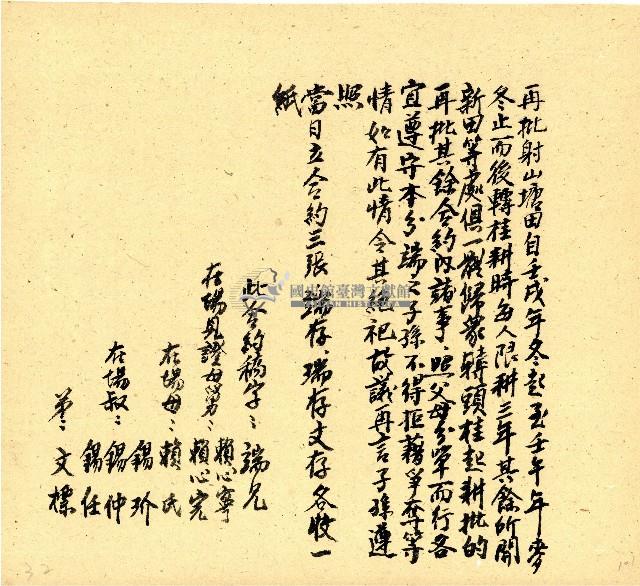 再批射山塘田自壬戌年冬起至壬午年麥
冬止而後轉桂耕時每人限耕三年其餘所開
新田等處俱一體歸衆轉頭桂起耕批的
再批其餘合約內諸事、照父母分單而行各
宜遵守本分端公子孫不得拒藉爭奪等
情如有此情令其絕祀故議再言子孫遵
照
當日立合約三張瑞存、瑞存文存各收一
紙
此合約稿字〻端兄
在場見證母舅〻賴心寧
賴心完
在場母〻賴氏
錫玠
在場叔〻錫仲
錫任
弟〻文標
國史館臺灣文獻館
TAIWAN HISTORICA
32